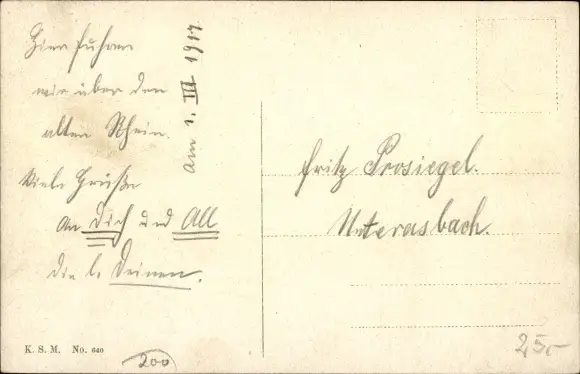 Hier fuhren
wir über den
alten Rhein.
Viele Grüße
An Dich und All
die l. Deinen.
Am 1. III 1917
Fritz Prosiegel.
Unterasbach.
K. S. M. No. 640
200
25,-